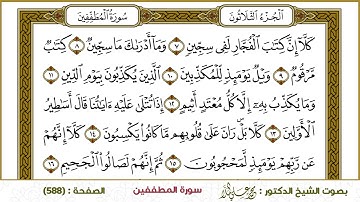 الجزء الثلاثون
سورة المطففين
كَلَّا إِنَّ كِتَٰبَ ٱلْفُجَّارِ لَفِى سِجِّينٍ ٧ وَمَآ أَدْرَىٰكَ مَا سِجِّينٌ ٨ كِتَٰبٌ
مَّرْقُومٌ ٩ وَيْلٌ يَوْمَئِذٍ لِّلْمُكَذِّبِينَ ١٠ ٱلَّذِينَ يُكَذِّبُونَ بِيَوْمِ ٱلدِّينِ ١١
وَمَا يُكَذِّبُ بِهِۦٓ إِلَّا كُلُّ مُعْتَدٍ أَثِيمٍ ١٢ إِذَا تُتْلَىٰ عَلَيْهِ ءَايَٰتُنَا قَالَ أَسَٰطِيرُ
ٱلْأَوَّلِينَ ١٣ كَلَّا بَلْ رَانَ عَلَىٰ قُلُوبِهِم مَّا كَانُوا۟ يَكْسِبُونَ ١٤ كَلَّآ إِنَّهُمْ
عَن رَّبِّهِمْ يَوْمَئِذٍ لَّمَحْجُوبُونَ ١٥ ثُمَّ إِنَّهُمْ لَصَالُوا۟ ٱلْجَحِيمِ ١٦
بصوت الشيخ الدكتور :
سورة المطففين
الصفحة : (588)